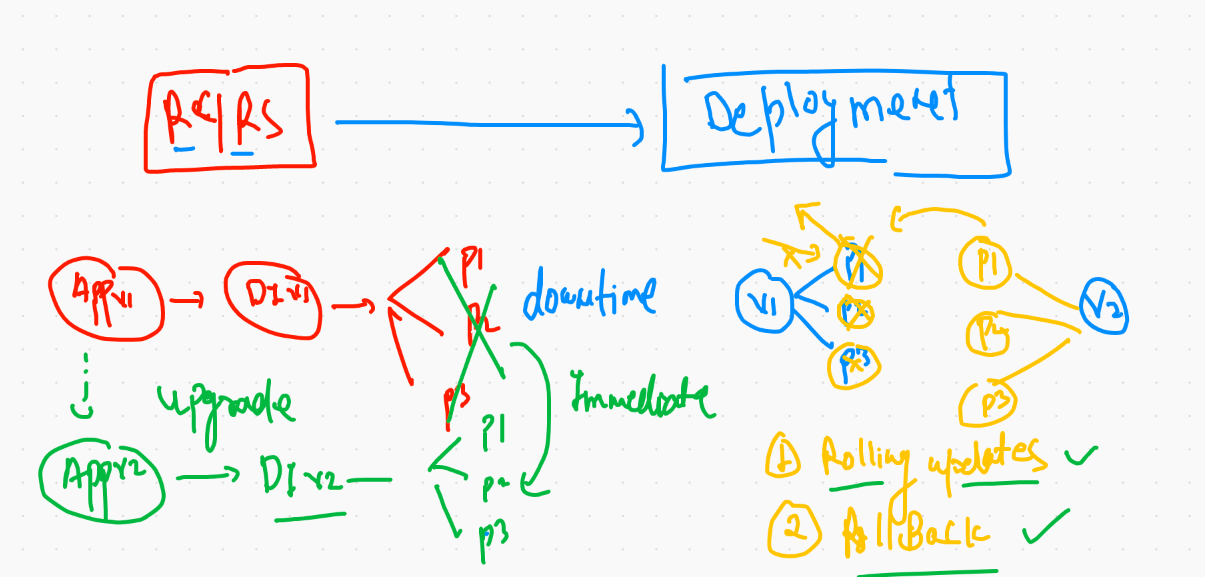 RC/RS
Deployment
App v1
DI v1
p1
p2
p3
downtime
upgrade
Immediate
App v2
DI v2
p1
p2
p3
v1
p1
p2
p3
p1
p2
p3
v2
1 Rolling updates
2 RollBack